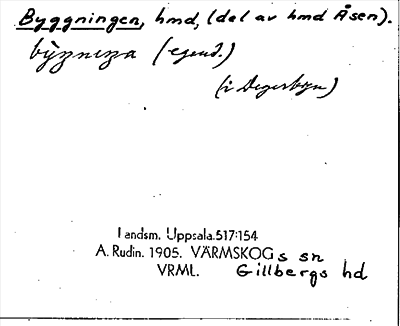 Byggningen, hmd, (del av hmd Åsen).
(egend.)
(i Degerbyn)
Landsm. Uppsala.517:154
A. Rudin. 1905. VÄRMSKOGs sn
VRML. Gillbergs hd